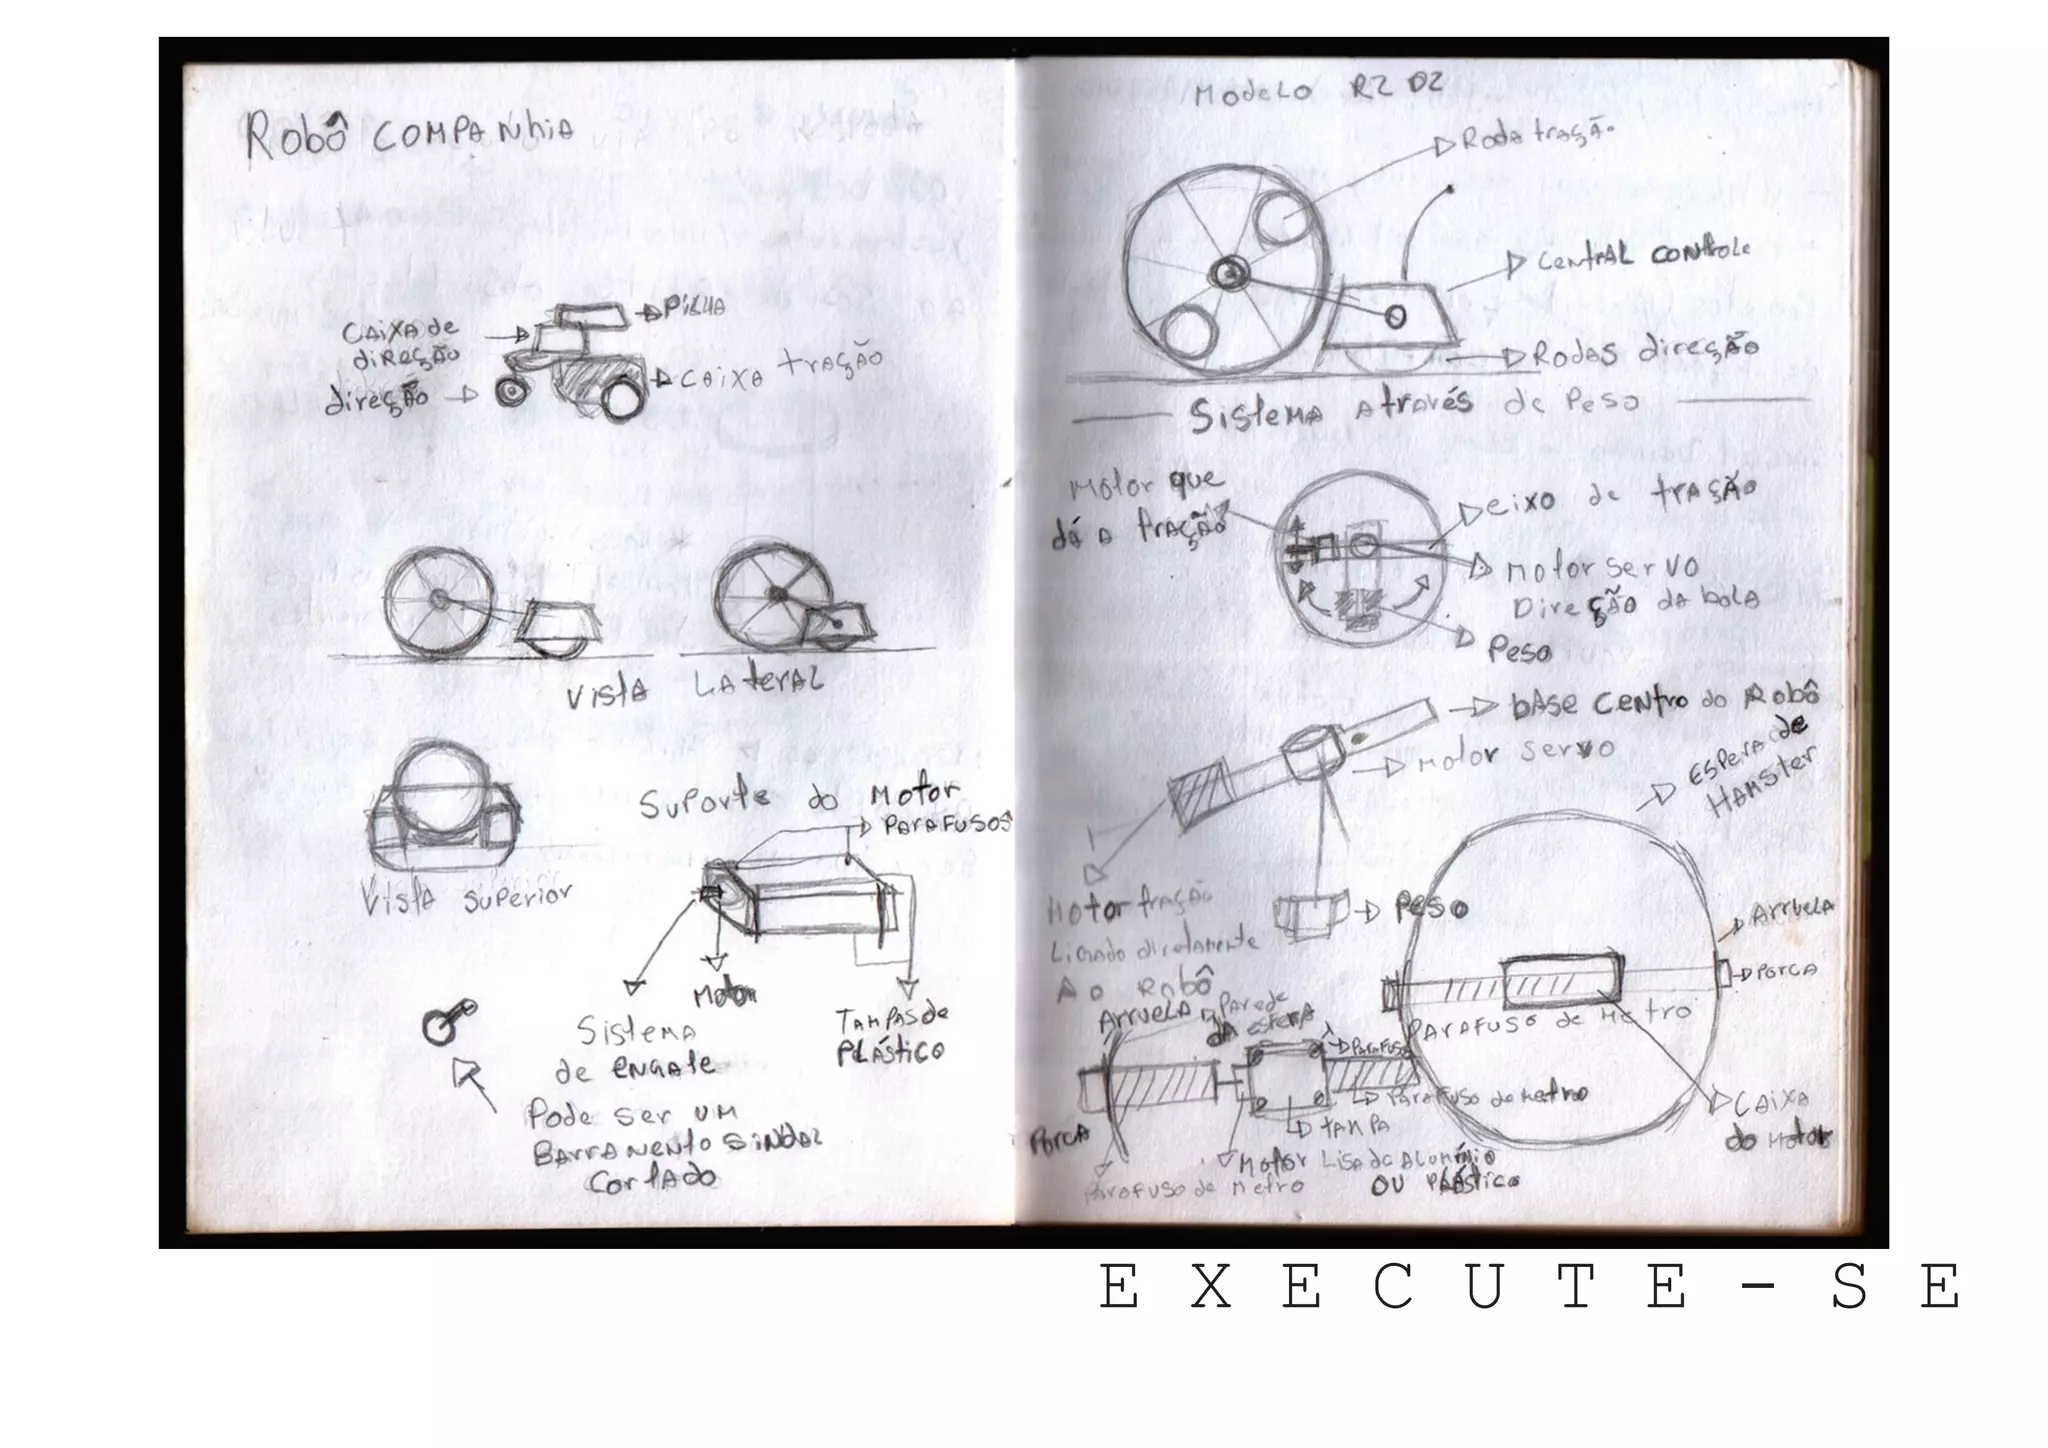 Robô COMPANhiA
PiLHA
CAiXA de
diREÇÃO
CAiXA trAÇÃO
direÇÃO
VistA LAterAL
VistA SuPerior
SuPorte do Motor
PARAFUSOS
Motor
SisteMA
de eNGAte
TAMPAS de
PLÁStiCO
Pode Ser UM
BArrAMeNto SiNdAL
CortAdo
ModeLo R2 D2
RodA trAÇÃo
CeNtrAL CONtrole
RodAS direÇÃo
SisteMA AtrAvés de Peso
Motor que
dá A trAÇÃo
eixo de trAÇÃo
Motor Servo
DireÇÃo dA boLA
Peso
bASe CeNtro do Robô
Motor Servo
ESPerA de
HAMSter
Motor trAÇÃo
LiGAdo diretAMeNte
Ao Robô
Peso
ArrueLA
PorCA
PArAFuSo de Metro
CAiXA
do Motor
ArrueLA
PArede
dA esFerA
PArAFuSo
PArAFuSo de Metro
tAMPA
PorCA
PArAFuSo de Metro
Motor LiSA de ALuMíNio
OU PLÁStiCo
EXECUTE-SE